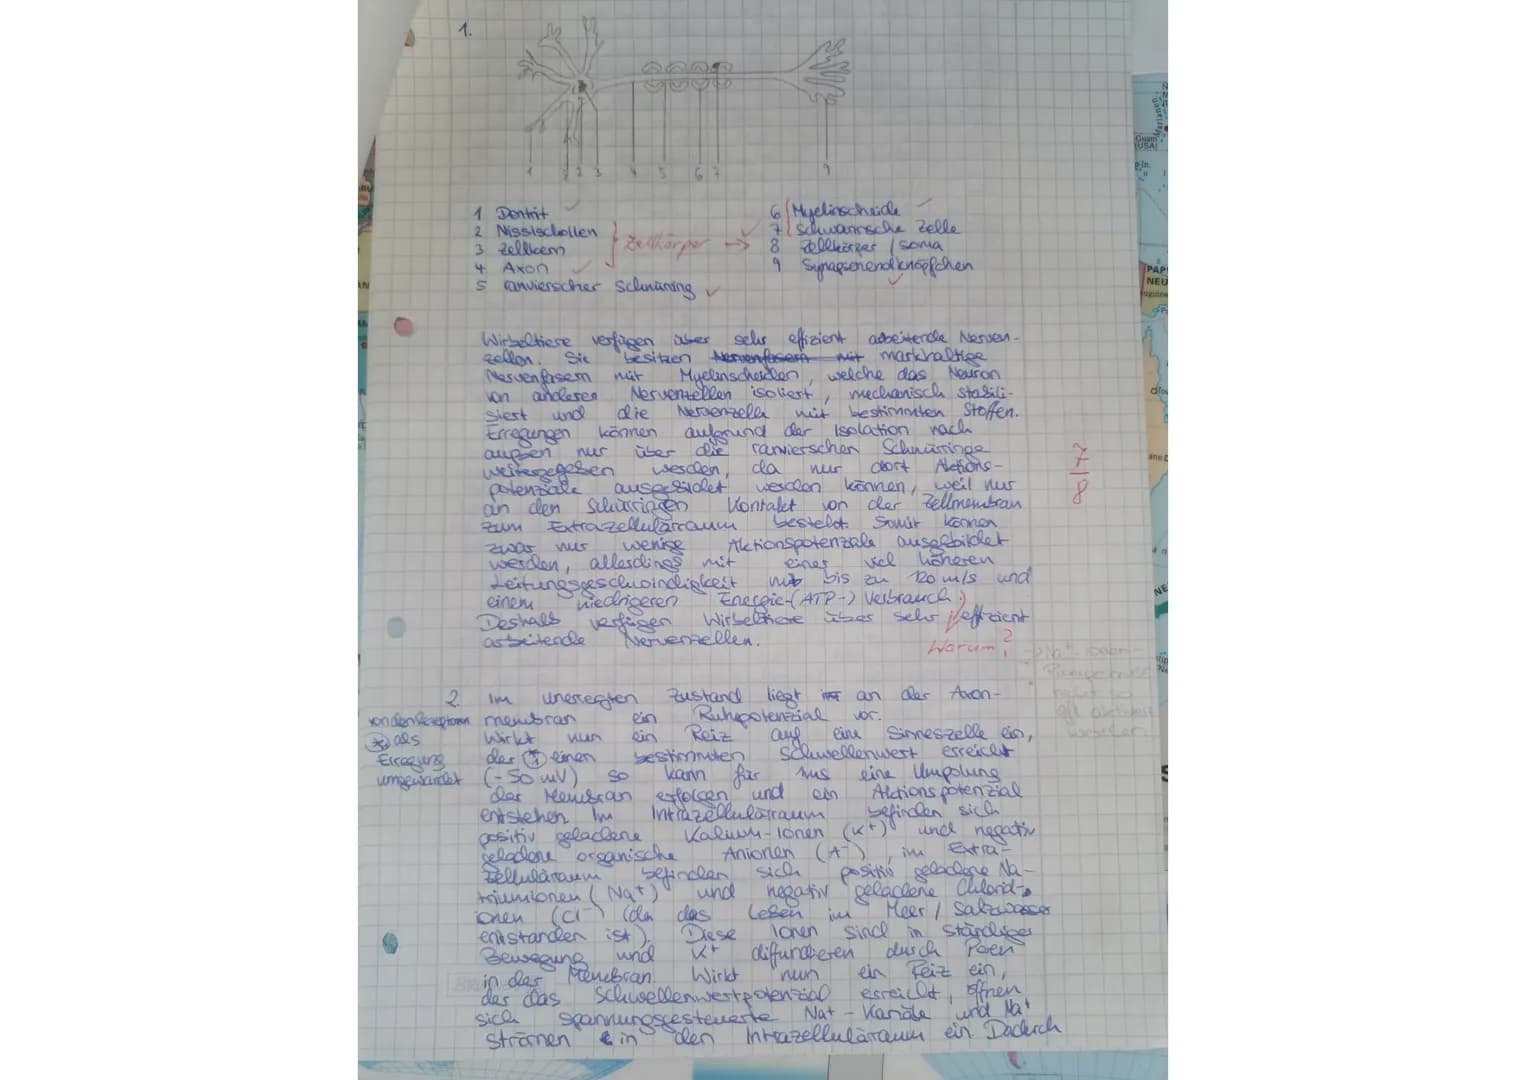 1.
1 2 3 4 5 6 7 9
1 Dentrit
2 Nisslschollen
3 Zellkern
4 Axon
5 ranvierscher Schnürring
Zellkörper →
6 Myelinscheide
7 Schwannsche Zelle
8 Zellkörper / Soma
9 Synapsenendknöpfchen
Wirbeltiere verfügen über sehr effizient arbeitende Nerven-
zellen. Sie besitzen Nervenfasern mit markhaltige
Nervenfasern mit Myelinscheiden, welche das Neuron
von anderen Nervenzellen isoliert, mechanisch stabili-
siert und die Nervenzelle mit bestimmten Stoffen.
Erregungen können aufgrund der Isolation nach
außen nur über die ranvierschen Schnürringe
weitergegeben werden, da nur dort Aktions-
potenziale ausgebildet werden können, weil nur
an den Schürringen Kontakt von der Zellmembran
zum Extrazellulärraum besteht. Somit können
zwar nur wenige Aktionspotenziale ausgebildet
werden, allerdings mit einer viel höheren
Leitungsgeschwindigkeit mit bis zu 120 m/s und
einem niedrigeren Energie-(ATP-) Verbrauch.
Deshalb verfügen Wirbeltiere über sehr effizient
arbeitende Nervenzellen.
Warum?
7
8
2. Im unerregten Zustand liegt an der Axon-
membran ein Ruhepotenzial vor.
Wirkt nun ein Reiz auf eine Sinneszelle ein,
der einen bestimmten Schwellenwert erreicht
(-50 mV) so kann für 1ms eine Umpolung
der Membran erfolgen und ein Aktionspotenzial
entstehen. Im Intrazellulärraum befinden sich
positiv geladene Kalium-Ionen (K+) und negativ
geladene organische Anionen (A-), im Extra-
zellulärraum befinden sich positiv geladene Na-
triumionen (Na+) und negativ geladene Chlorid-
ionen (Cl-) (da das Leben im Meer / Salzwasser
entstanden ist). Diese Ionen sind in ständiger
Bewegung und K+ diffundieren durch Poren
in der Membran. Wirkt nun ein Reiz ein,
der das Schwellenwertpotenzial erreicht, öffnen
sich spannungsgesteuerte Na+-Kanäle und Na+
strömen in den Intrazellulärraum ein. Dadurch
von den Rezeptoren
als
Erregung
umgewandelt
Guam
(USA)
PAP
NEU